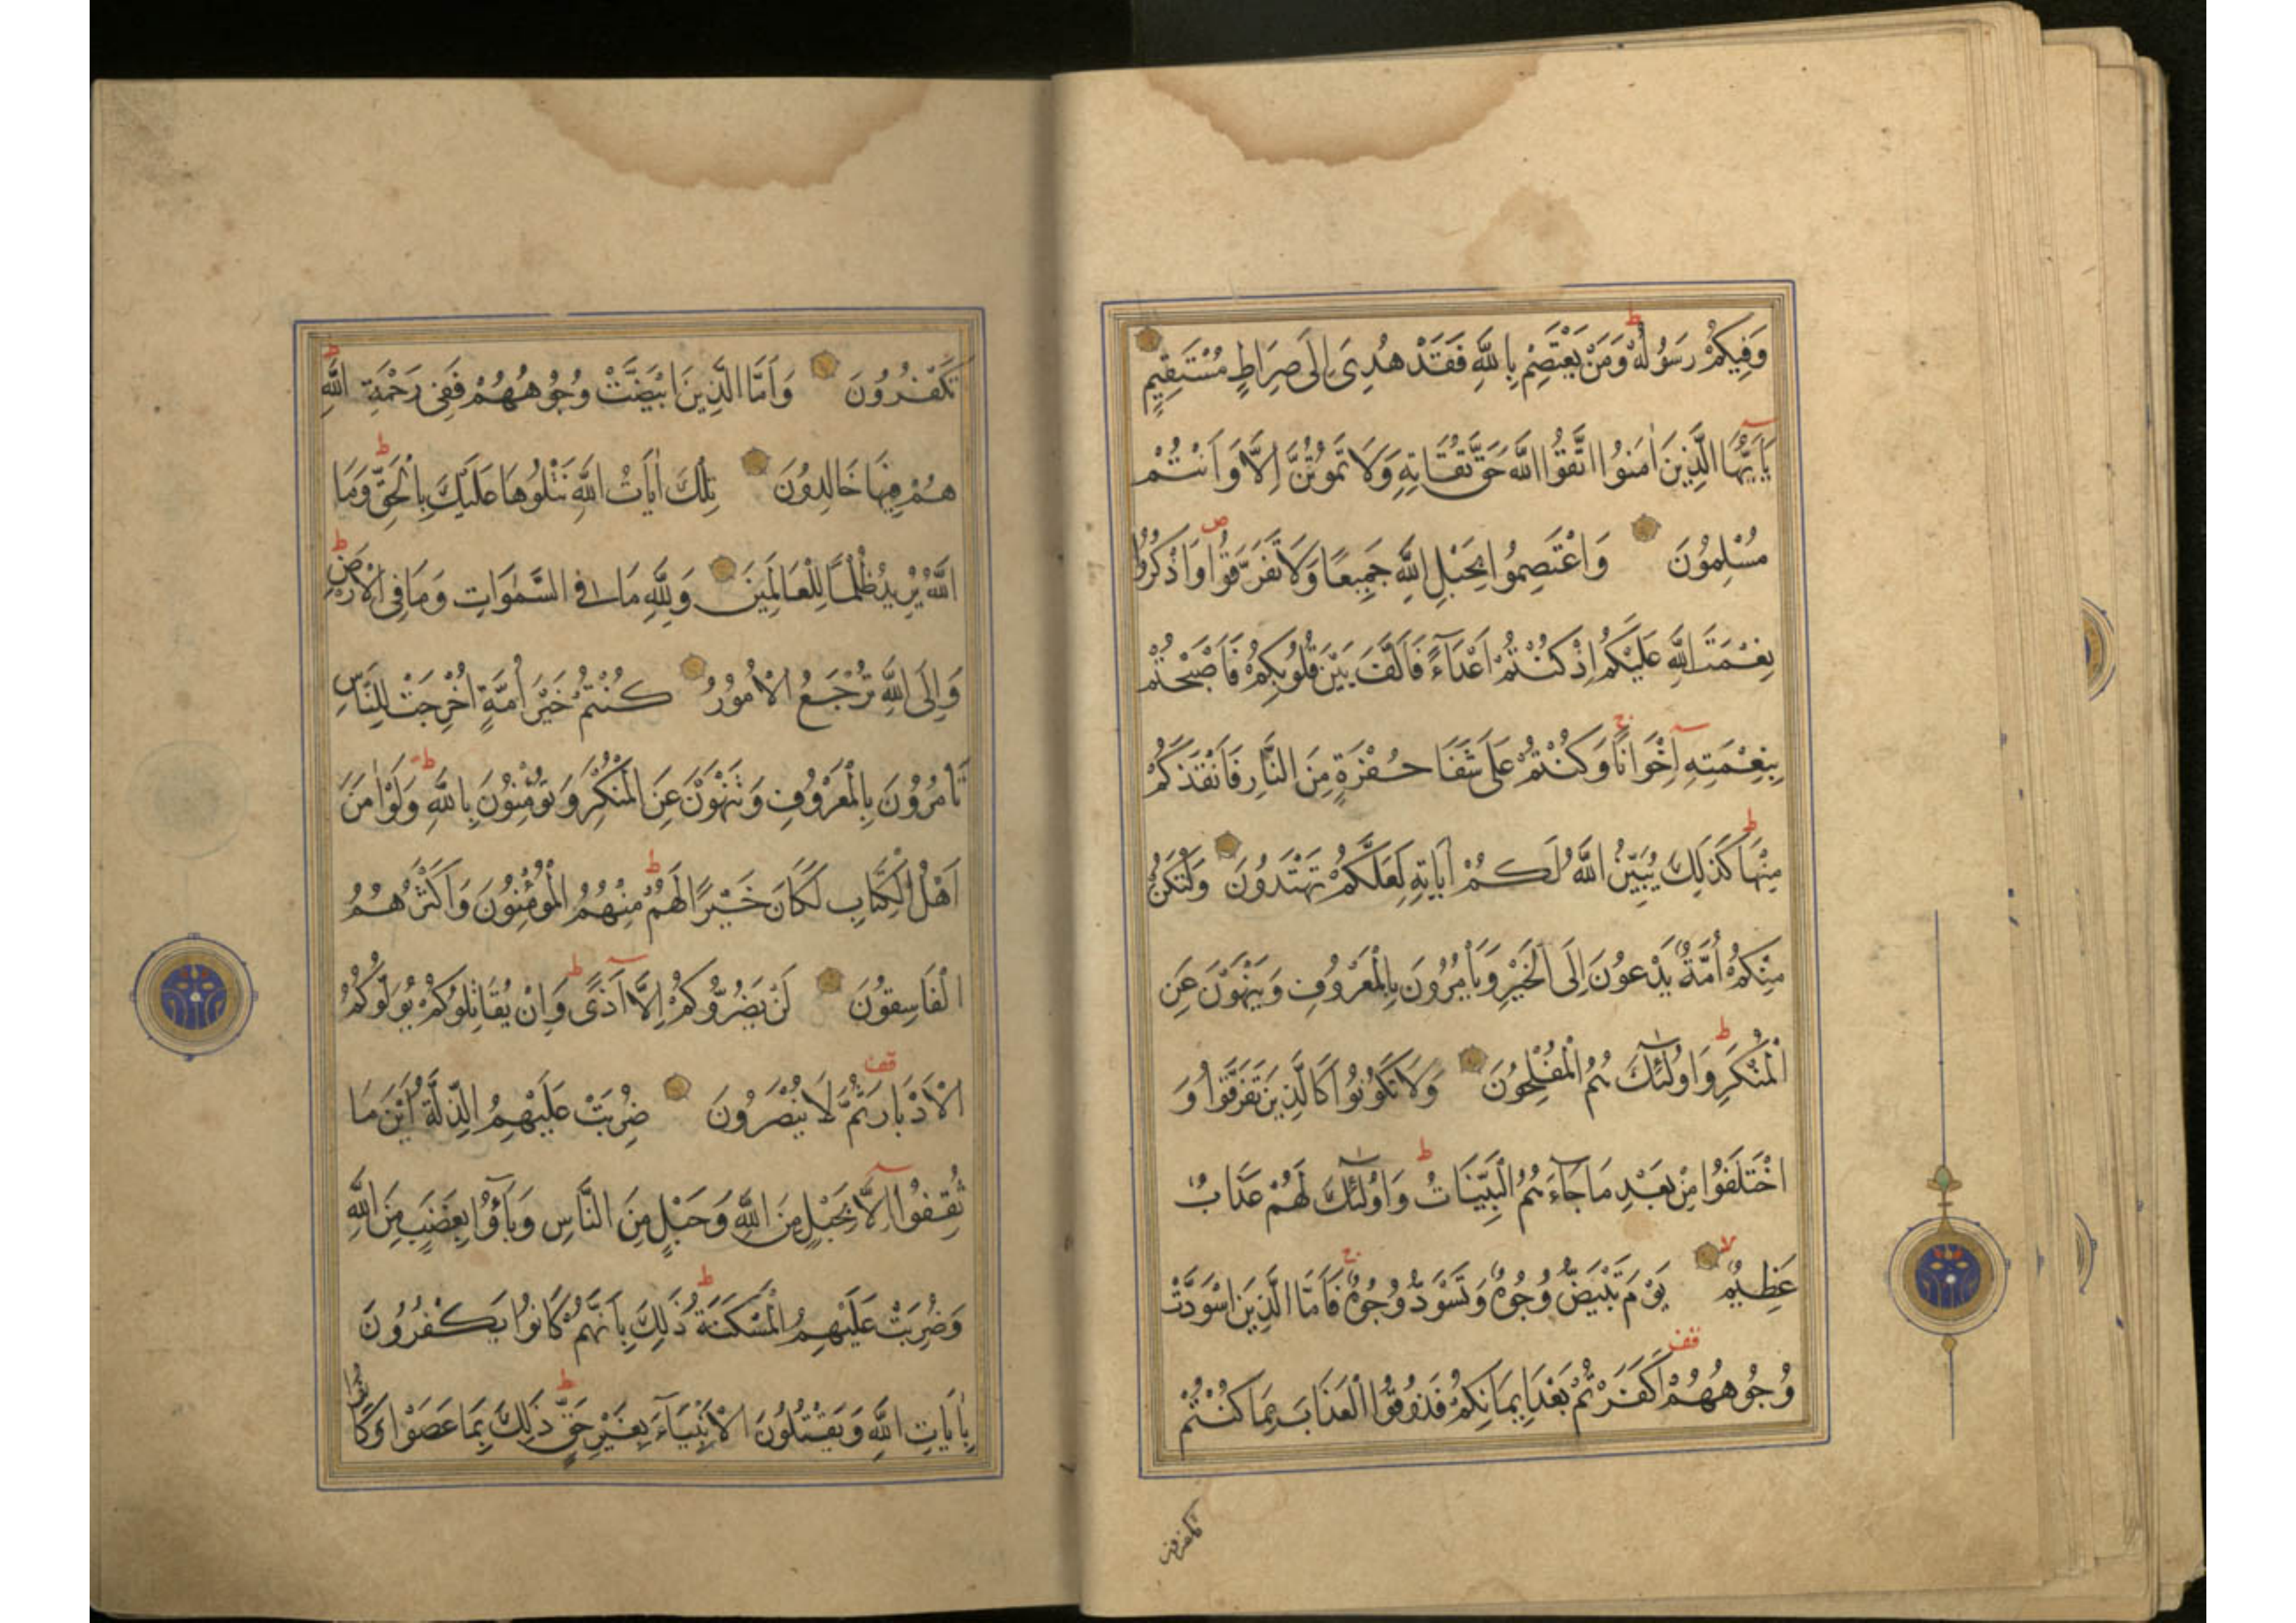 وَفِيكُمْ رَسُولُهُ ط وَمَنْ يَعْتَصِمْ بِاللَّهِ فَقَدْ هُدِىَ إِلَى صِرَاطٍ مُسْتَقِيمٍ
يَا أَيُّهَا الَّذِينَ اٰمَنُوا اتَّقُوا اللَّهَ حَقَّ تُقَاتِهِ وَلَا تَمُوتُنَّ اِلَّا وَاَنْتُمْ
مُسْلِمُونَ وَاعْتَصِمُوا بِحَبْلِ اللَّهِ جَمِيعًا وَلَا تَفَرَّقُوا ص وَاذْكُرُوا
نِعْمَتَ اللَّهِ عَلَيْكُمْ اِذْ كُنْتُمْ اَعْدَآءً فَاَلَّفَ بَيْنَ قُلُوبِكُمْ فَاَصْبَحْتُمْ
بِنِعْمَتِهِ اِخْوَانًا ج وَكُنْتُمْ عَلَى شَفَا حُفْرَةٍ مِنَ النَّارِ فَاَنْقَذَكُمْ
مِنْهَا ط كَذَلِكَ يُبَيِّنُ اللَّهُ لَكُمْ اٰيَاتِهِ لَعَلَّكُمْ تَهْتَدُونَ وَلْتَكُنْ
مِنْكُمْ اُمَّةٌ يَدْعُونَ اِلَى الْخَيْرِ وَيَأْمُرُونَ بِالْمَعْرُوفِ وَيَنْهَوْنَ عَنِ
الْمُنْكَرِ ط وَاُولٰٓئِكَ هُمُ الْمُفْلِحُونَ وَلَا تَكُونُوا كَالَّذِينَ تَفَرَّقُوا وَ
اخْتَلَفُوا مِنْ بَعْدِ مَا جَآءَهُمُ الْبَيِّنَاتُ ط وَاُولٰٓئِكَ لَهُمْ عَذَابٌ
عَظِيمٌ لا يَوْمَ تَبْيَضُّ وُجُوهٌ وَتَسْوَدُّ وُجُوهٌ ج فَاَمَّا الَّذِينَ اسْوَدَّتْ
وُجُوهُهُمْ قف اَكَفَرْتُمْ بَعْدَ اِيمَانِكُمْ فَذُوقُوا الْعَذَابَ بِمَا كُنْتُمْ
تكفرون
تَكْفُرُونَ وَاَمَّا الَّذِينَ ابْيَضَّتْ وُجُوهُهُمْ فَفِى رَحْمَةِ اللَّهِ ط
هُمْ فِيهَا خَالِدُونَ تِلْكَ اٰيَاتُ اللَّهِ نَتْلُوهَا عَلَيْكَ بِالْحَقِّ ط وَمَا
اللَّهُ يُرِيدُ ظُلْمًا لِلْعَالَمِينَ وَلِلَّهِ مَا فِى السَّمٰوَاتِ وَمَا فِى الْاَرْضِ ط
وَاِلَى اللَّهِ تُرْجَعُ الْاُمُورُ كُنْتُمْ خَيْرَ اُمَّةٍ اُخْرِجَتْ لِلنَّاسِ
تَأْمُرُونَ بِالْمَعْرُوفِ وَتَنْهَوْنَ عَنِ الْمُنْكَرِ وَتُؤْمِنُونَ بِاللَّهِ ط وَلَوْ اٰمَنَ
اَهْلُ الْكِتَابِ لَكَانَ خَيْرًا لَهُمْ ط مِنْهُمُ الْمُؤْمِنُونَ وَاَكْثَرُهُمُ
الْفَاسِقُونَ لَنْ يَضُرُّوكُمْ اِلَّا اَذًى ط وَاِنْ يُقَاتِلُوكُمْ يُوَلُّوكُمُ
الْاَدْبَارَ قف ثُمَّ لَا يُنْصَرُونَ ضُرِبَتْ عَلَيْهِمُ الذِّلَّةُ اَيْنَ مَا
ثُقِفُوا اِلَّا بِحَبْلٍ مِنَ اللَّهِ وَحَبْلٍ مِنَ النَّاسِ وَبَآؤُا بِغَضَبٍ مِنَ اللَّهِ
وَضُرِبَتْ عَلَيْهِمُ الْمَسْكَنَةُ ط ذَلِكَ بِاَنَّهُمْ كَانُوا يَكْفُرُونَ
بِاٰيَاتِ اللَّهِ وَيَقْتُلُونَ الْاَنْبِيَآءَ بِغَيْرِ حَقٍّ ط ذَلِكَ بِمَا عَصَوْا وَكَا